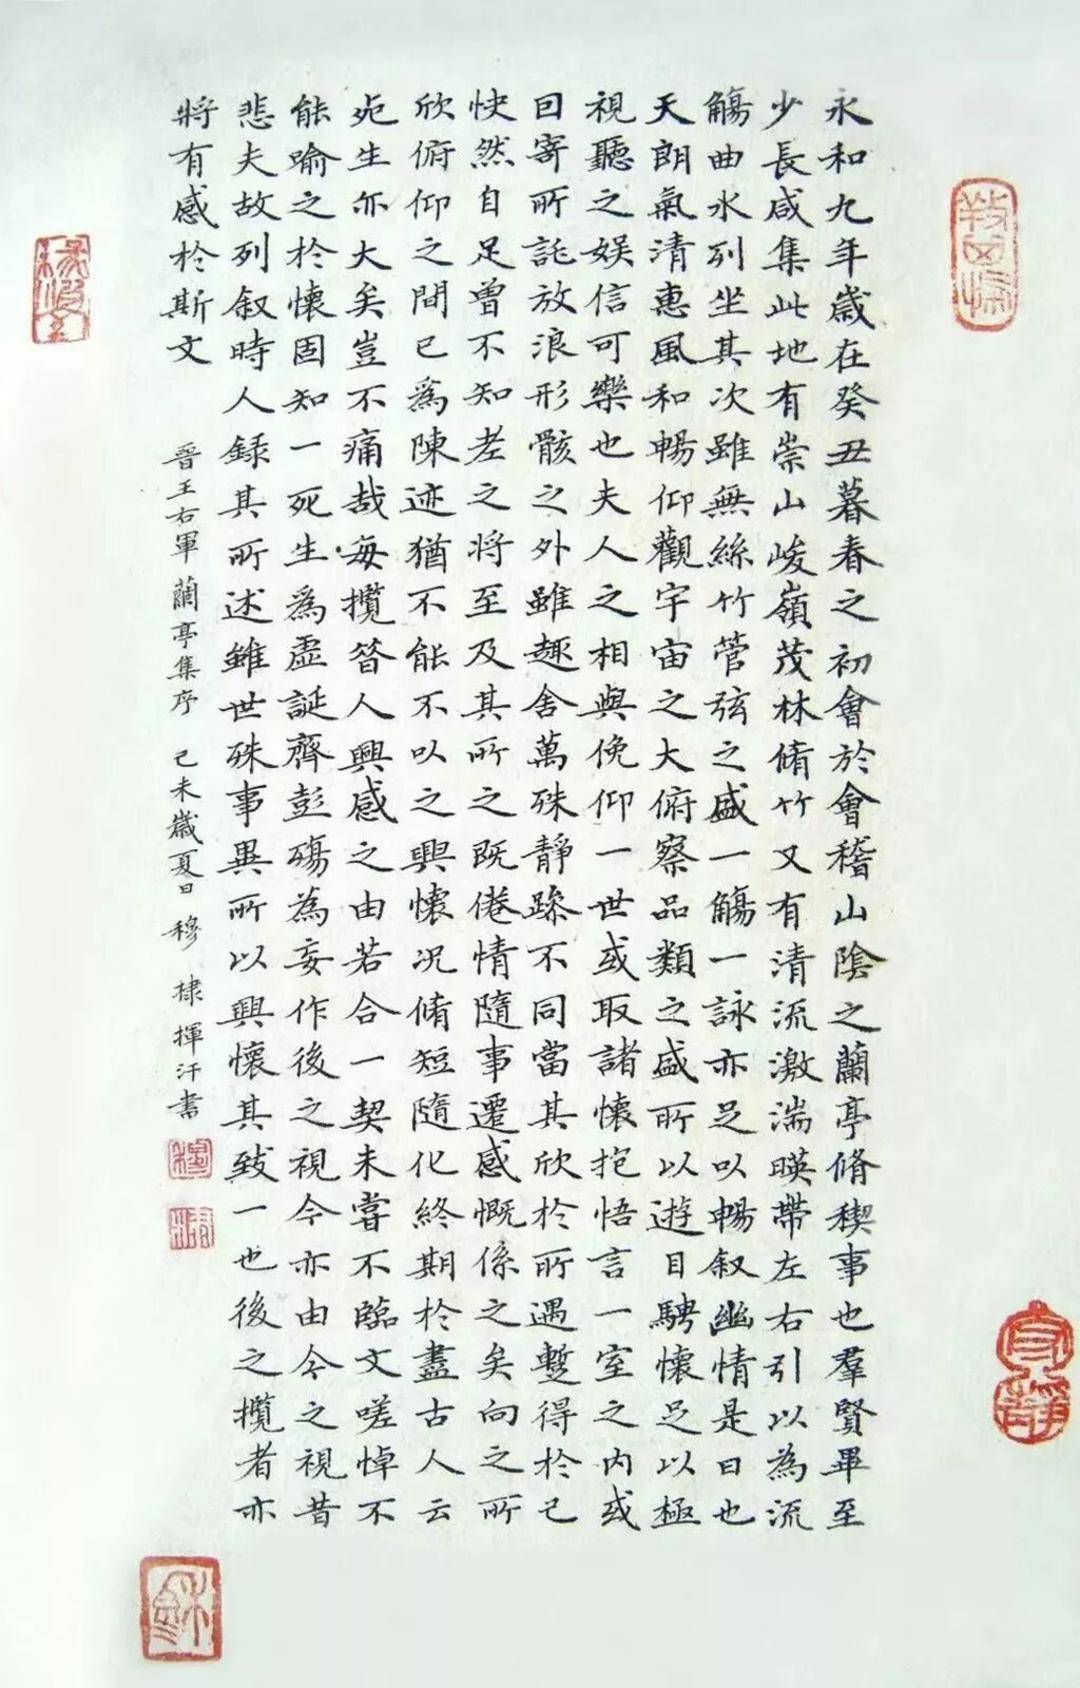 永和九年歲在癸丑暮春之初會於會稽山陰之蘭亭脩稧事也羣賢畢至
少長咸集此地有崇山峻嶺茂林脩竹又有清流激湍暎帶左右引以為流
觴曲水列坐其次雖無絲竹管弦之盛一觴一詠亦足以暢叙幽情是日也
天朗氣清惠風和暢仰觀宇宙之大俯察品類之盛所以遊目騁懷足以極
視聽之娱信可樂也夫人之相與俛仰一世或取諸懷抱悟言一室之內或
回寄所託放浪形骸之外雖趣舍萬殊靜躁不同當其欣於所遇暫得於己
快然自足曾不知老之将至及其所之既倦情隨事遷感慨係之矣向之所
欣俯仰之間已為陳迹猶不能不以之興懷况脩短隨化終期於盡古人云
死生亦大矣豈不痛哉每攬昝人興感之由若合一契未嘗不臨文嗟悼不
能喻之於懷固知一死生為虛誕齊彭殤為妄作後之視今亦由今之視昔
悲夫故列叙時人録其所述雖世殊事異所以興懷其致一也後之攬者亦
將有感於斯文
晉王右軍蘭亭集序 己未歲夏日 穆棣揮汗書
穆